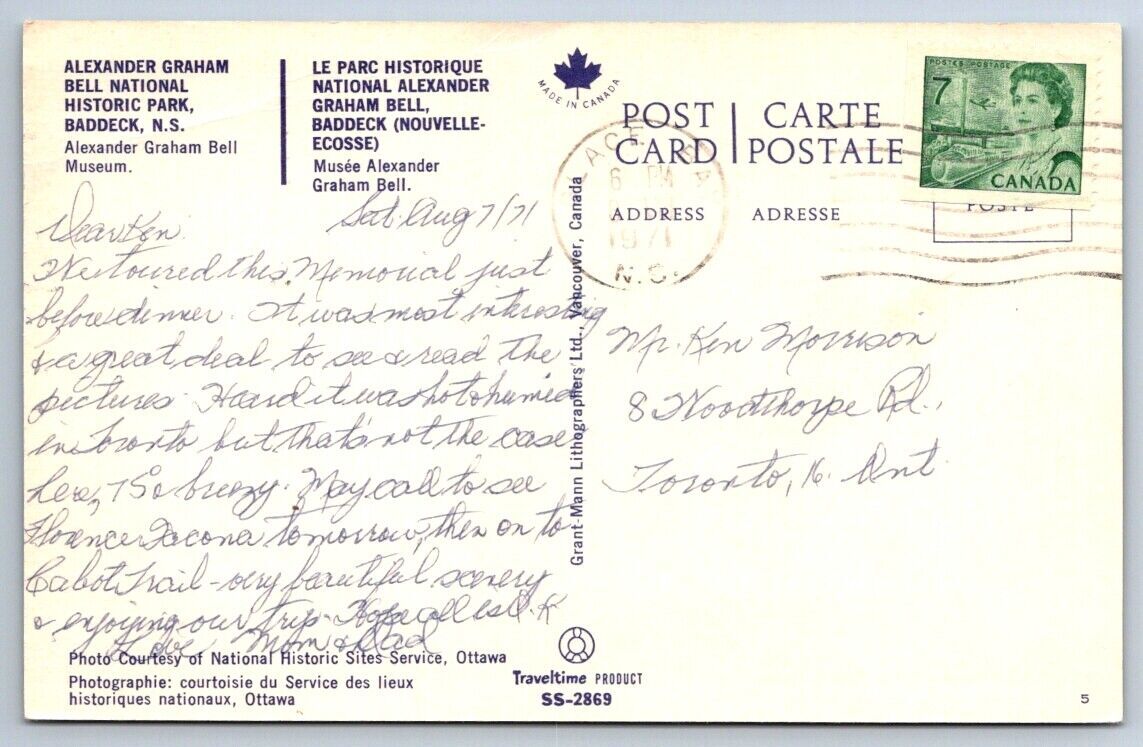 ALEXANDER GRAHAM
BELL NATIONAL
HISTORIC PARK,
BADDECK, N.S.
Alexander Graham Bell
Museum.
LE PARC HISTORIQUE
NATIONAL ALEXANDER
GRAHAM BELL,
BADDECK (NOUVELLE-
ECOSSE)
Musée Alexander
Graham Bell.
MADE IN CANADA
POST CARD
CARTE POSTALE
ADDRESS
ADRESSE
POSTES POSTAGE
7
CANADA
POSTE
6 PM
1971
N.S.
Sat. Aug 7/71
Dear Ken
We toured this Memorial just
before dinner. It was most interesting
& a great deal to see & read the
pictures. Heard it was hot & humid
in Toronto but that's not the case
here, 75° breezy. May call to see
Florence tomorrow, then on to
Cabot Trail - very beautiful scenery
& enjoying our trip. Hope all is O.K
Love Mom & Dad
Mr. Ken Morrison
8 Woodthorpe Rd.,
Toronto, 16. Ont.
Grant-Mann Lithographers Ltd., Vancouver, Canada
Photo Courtesy of National Historic Sites Service, Ottawa
Photographie: courtoisie du Service des lieux
historiques nationaux, Ottawa
Traveltime PRODUCT
SS-2869
5